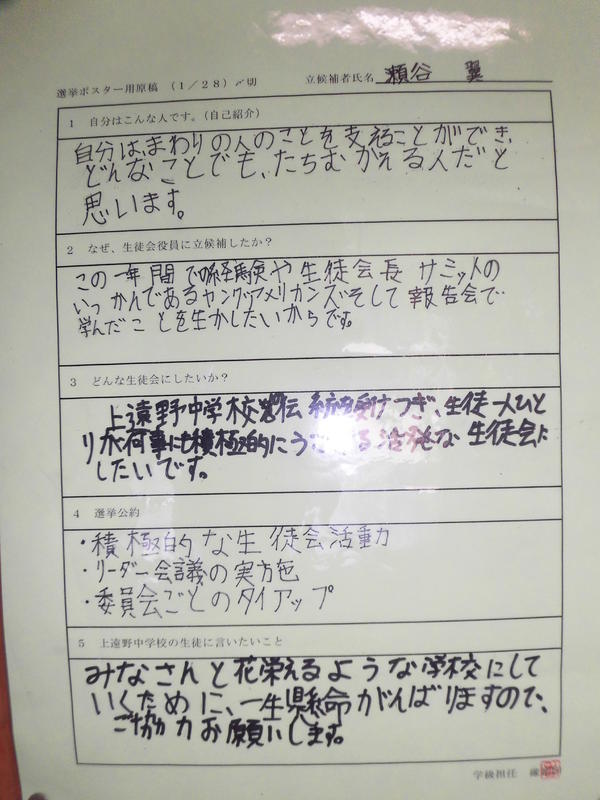 選挙ポスター用原稿 (1/28)〆切 立候補者氏名 瀬谷 翼
1 自分はこんな人です。(自己紹介)
自分は、まわりの人のことを支えることができ、
どんなことでも、たちむかえる人だと
思います。
2 なぜ、生徒会役員に立候補したか?
この一年間での経験や生徒会長サミットの
いっかんであるヤングアメリカンズそして報告会で
学んだことを生かしたいからです。
3 どんな生徒会にしたいか?
上遠野中学校の伝統を受けつぎ、生徒一人ひと
りが何事にも積極的にう る活発な生徒会に
したいです。
4 選挙公約
・積極的な生徒会活動
・リーダー会議の実施
・委員会ごとのタイアップ
5 上遠野中学校の生徒に言いたいこと
みなさんと花栄えるような学校にして
いくために、一生懸命がんばりますので、
ご協力お願いします。
学級担任